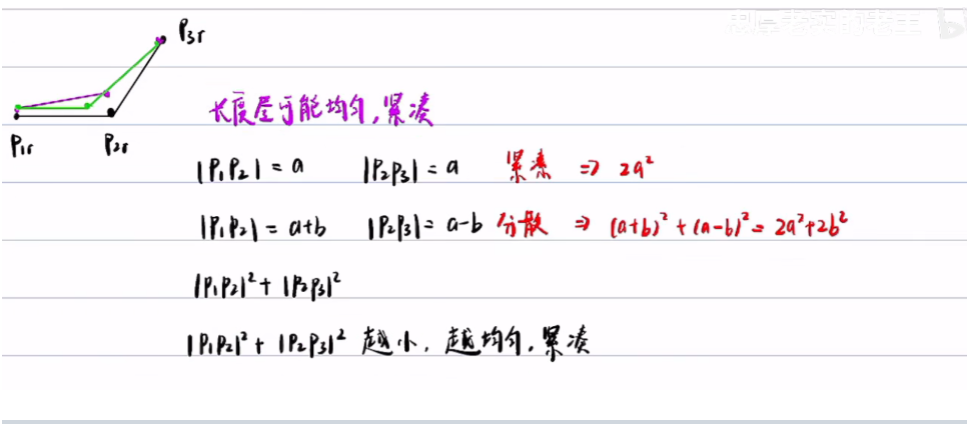 忠厚老实的老王
P₃r
P₁r P₂r
长度尽可能均匀,紧凑
|P₁P₂| = a |P₂P₃| = a 紧凑 => 2a²
|P₁P₂| = a+b |P₂P₃| = a-b 分散 => (a+b)² + (a-b)² = 2a²+2b²
|P₁P₂|² + |P₂P₃|²
|P₁P₂|² + |P₂P₃|² 越小, 越均匀, 紧凑